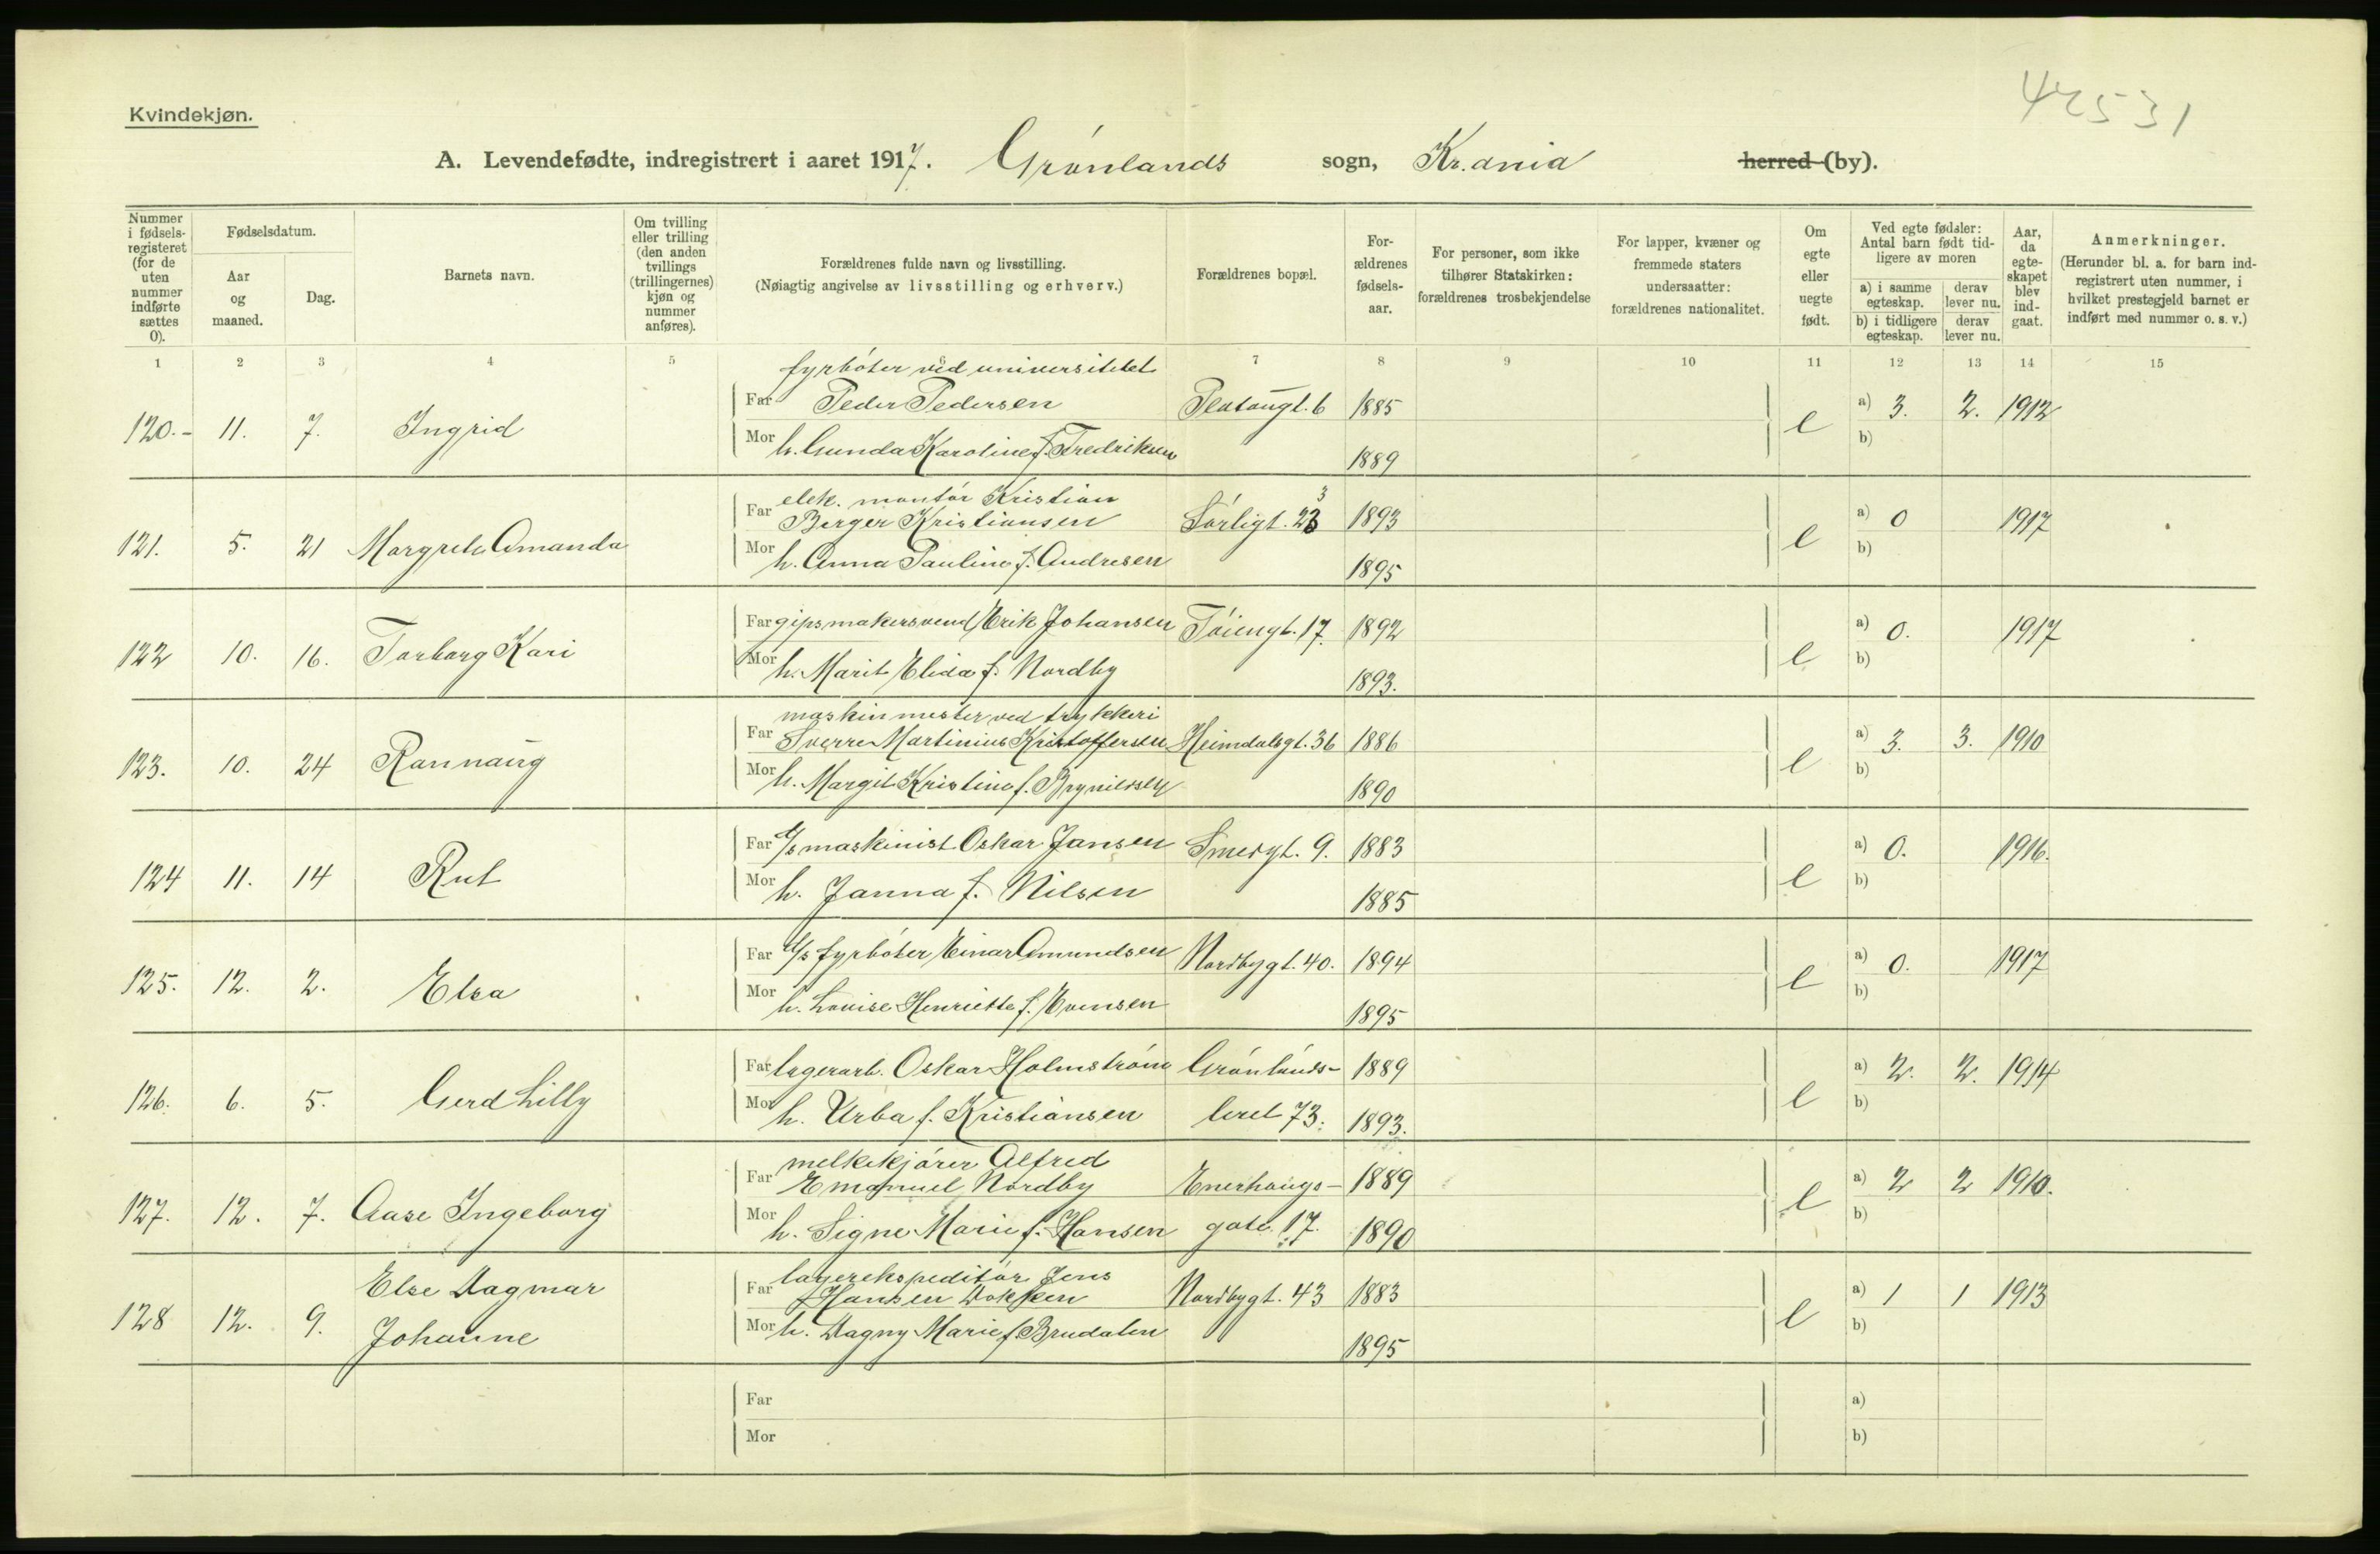 42531
Kvindekjøn.
A. Levendefødte, indregistrert i aaret 1917. Grønlands sogn, Kr.ania herred (by).
Nummer i fødsels-registeret (for de uten nummer indførte sættes 0).
Fødselsdatum.
Aar og maaned.
Dag.
Barnets navn.
Om tvilling eller trilling (den anden tvillings (trillingernes) kjøn og nummer anføres).
Forældrenes fulde navn og livsstilling.
(Nøiagtig angivelse av livsstilling og erhverv.)
Forældrenes bopæl.
For-ældrenes fødsels-aar.
For personer, som ikke tilhører Statskirken: forældrenes trosbekjendelse
For lapper, kvæner og fremmede staters undersaatter: forældrenes nationalitet.
Om egte eller uegte født.
Ved egte fødsler: Antal barn født tid-ligere av moren
a) i samme egteskap.
derav lever nu.
b) i tidligere egteskap.
derav lever nu.
Aar, da egte-skapet blev ind-gaat.
Anmerkninger.
(Herunder bl. a. for barn ind-registrert uten nummer, i hvilket prestegjeld barnet er indført med nummer o. s. v.)
1 2 3 4 5 6 7 8 9 10 11 12 13 14 15
fyrbøter ved universitetet
120.- 11. 7. Ingrid Far Peder Pedersen Platougt. 6 1885 e a) 3. 2. 1912
Mor h. Gunda Karoline f. Fredriksen 1889 b)
elek. montør Kristian
121. 5. 21 Margrete Amanda Far Birger Kristiansen Sørligt. 23 3 1893 e a) 0 1917
Mor h. Anna Pauline f. Andresen 1895 b)
122 10. 16. Torborg Kari Far gipsmakersvend Erik Johansen Tøiengt. 17. 1892 e a) 0. 1917
Mor h. Marit Elida f. Nordby 1893. b)
maskinmester ved trykkeri
123. 10. 24 Rannaug Far Sverre Martinius Kristoffersen Heimdalsgt. 36 1886 e a) 3. 3. 1910
Mor h. Margit Kristine f. Brynildsen 1890 b)
124 11. 14 Rut Far d/s maskinist Oskar Jansen Smedgt. 9. 1883 e a) 0. 1916.
Mor h. Janna f. Nilsen 1885 b)
125. 12. 2. Elsa Far d/s fyrbøter Einar Amundsen Nordbygt. 40. 1894 e a) 0. 1917
Mor h. Lovise Henriette f. Evensen 1895 b)
126. 6. 5. Gerd Lilly Far lagerarb. Oskar Holmstrøm Grønlands- 1889 e a) 2. 2. 1914
Mor h. Urba f. Kristiansen leret 73. 1893. b)
melkekjører Alfred
127. 12. 7. Aase Ingeborg Far Emanuel Nordby Enerhaugs- 1889 e a) 2 2 1910.
Mor h. Signe Marie f. Hansen gate 17. 1890 b)
Else Dagmar lagerekspeditør Jens
128 12. 9. Johanne Far Hansen Dokken Nordbygt. 43 1883 e a) 1 1 1913
Mor h. Dagny Marie f. Brudalen 1895 b)
Far a)
Mor b)